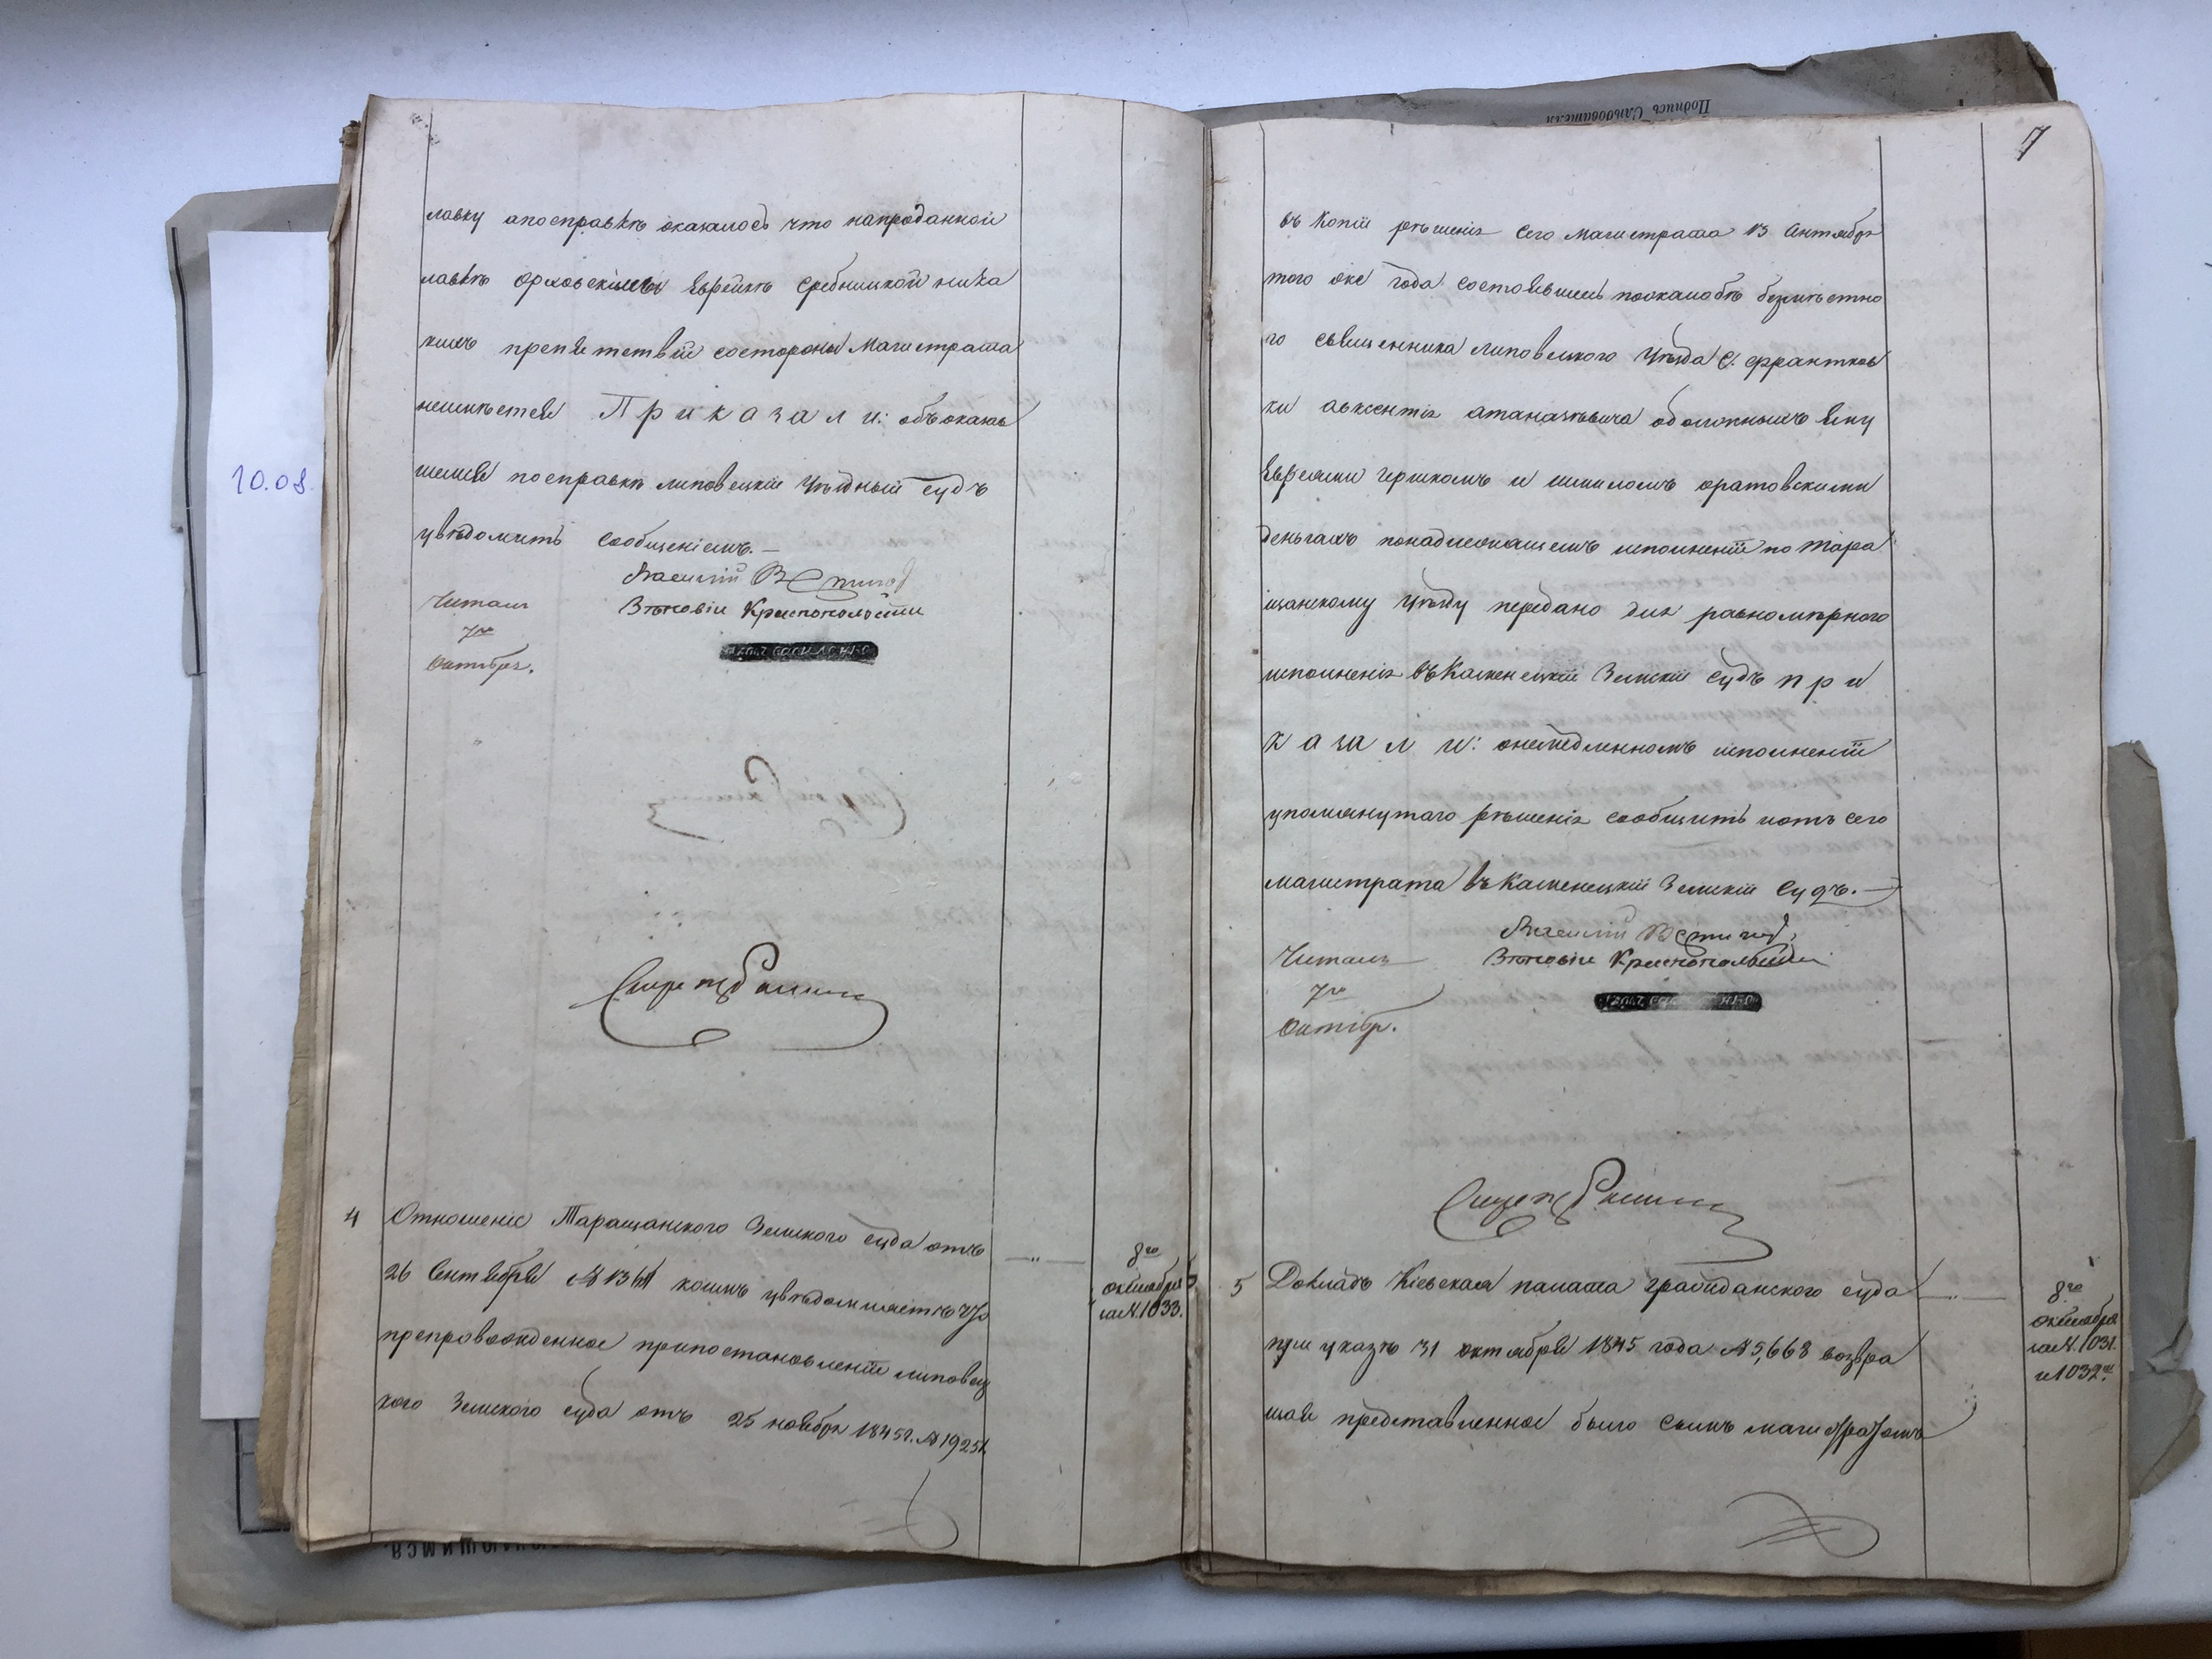 лавку апосправкѣ оказалось что напроданной
лавкѣ Еврейкѣ Сребницкой ника
кихъ препятствій состороны Магистрата
неимѣется Приказали: объоказав
шемся посправкѣ липовецкій Уѣздный Судъ
увѣдомить сообщеніемъ.—
Василій
Читалъ Зѣновій Краснопольскій
7го
Октября.
Секретарь
4 Отношеніе Таращанского Земского суда отъ
26 Сентября № коимъ увѣдомляетъ что
препровожденное припостановленіи липовец
кого Земского суда отъ 25 ноября 1845г. № 19251
—„—
8го
октября
заN. 1033.
7
въ Копіи рѣшенія сего Магистрата 13 Октября
того же года состоявшеесь пожалобѣ безмѣстно
го священника липовецкого Уѣзда С. Франтков
ки авксентія атаназѣвича одолжныхъ ему
Евреями Гершкомъ и шмиломъ оратовскими
деньгахъ понадлежащемъ исполненіи по Тара
щанскому Уѣзду передано для равномѣрного
исполненія въ Каменецкій Земскій Судъ при
казали: онемедленномъ исполненіи
упомянутаго рѣшенія сообщить иотъ сего
магистрата въ Каменецкій Земскій Судъ.—
Василій
Читалъ Зѣновій Краснопольскій
7го
Октябр.
Секретарь
5 Докладъ Кіевская палата гражданского суда
при указѣ 31 октября 1845 года №5,668 возвра
щая представленное было симъ магистратомъ
—„—
8го
октября
заN. 1031.
и 1032м.
10.08.
Подпись Слѣдователя